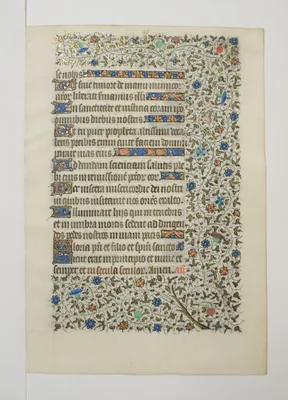 se nobis
Ut sine timore de manu inimicor
nior liberati serviamus illi
In sanctitate et iusticia coram ipo
omnibus diebus nostris
Et tu puer propheta altissimi voca
beris preibis enim ante faciem domini
parare vias eius
Ad dandam scienciam salutis ple
bi eius in remissione pccor eor
Per viscera misericordie dei nostri
in quibus visitavit nos oriens ex alto
Illuminare hijs qui in tenebris
et in umbra mortis sedent ad dirigen
dos pedes nostros in viam pacis
Gloria pri et filio et spui sancto
Sicut erat in principio et nunc et
semper et in secula seculor Amen